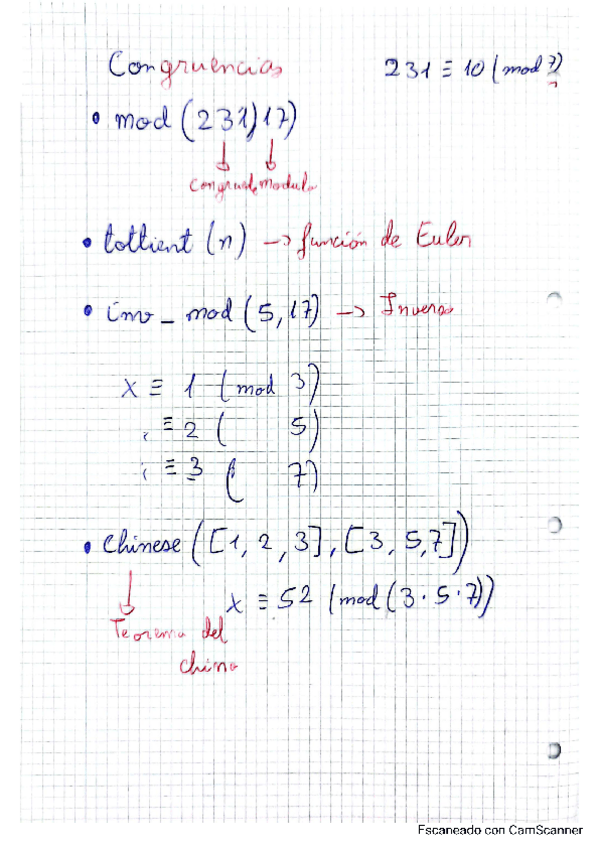 Congruencias 231 ≡ 10 (mod 7)
• mod (231, 17)
↓ ↓
Congruente modulo
• tottient (n) → función de Euler
• inv_mod (5, 17) → Inverso
x ≡ 1 (mod 3)
" ≡ 2 ( 5)
" ≡ 3 ( 7)
• Chinese ([1, 2, 3], [3, 5, 7])
x ≡ 52 (mod (3 · 5 · 7))
Teorema del
chino
Escaneado con CamScanner